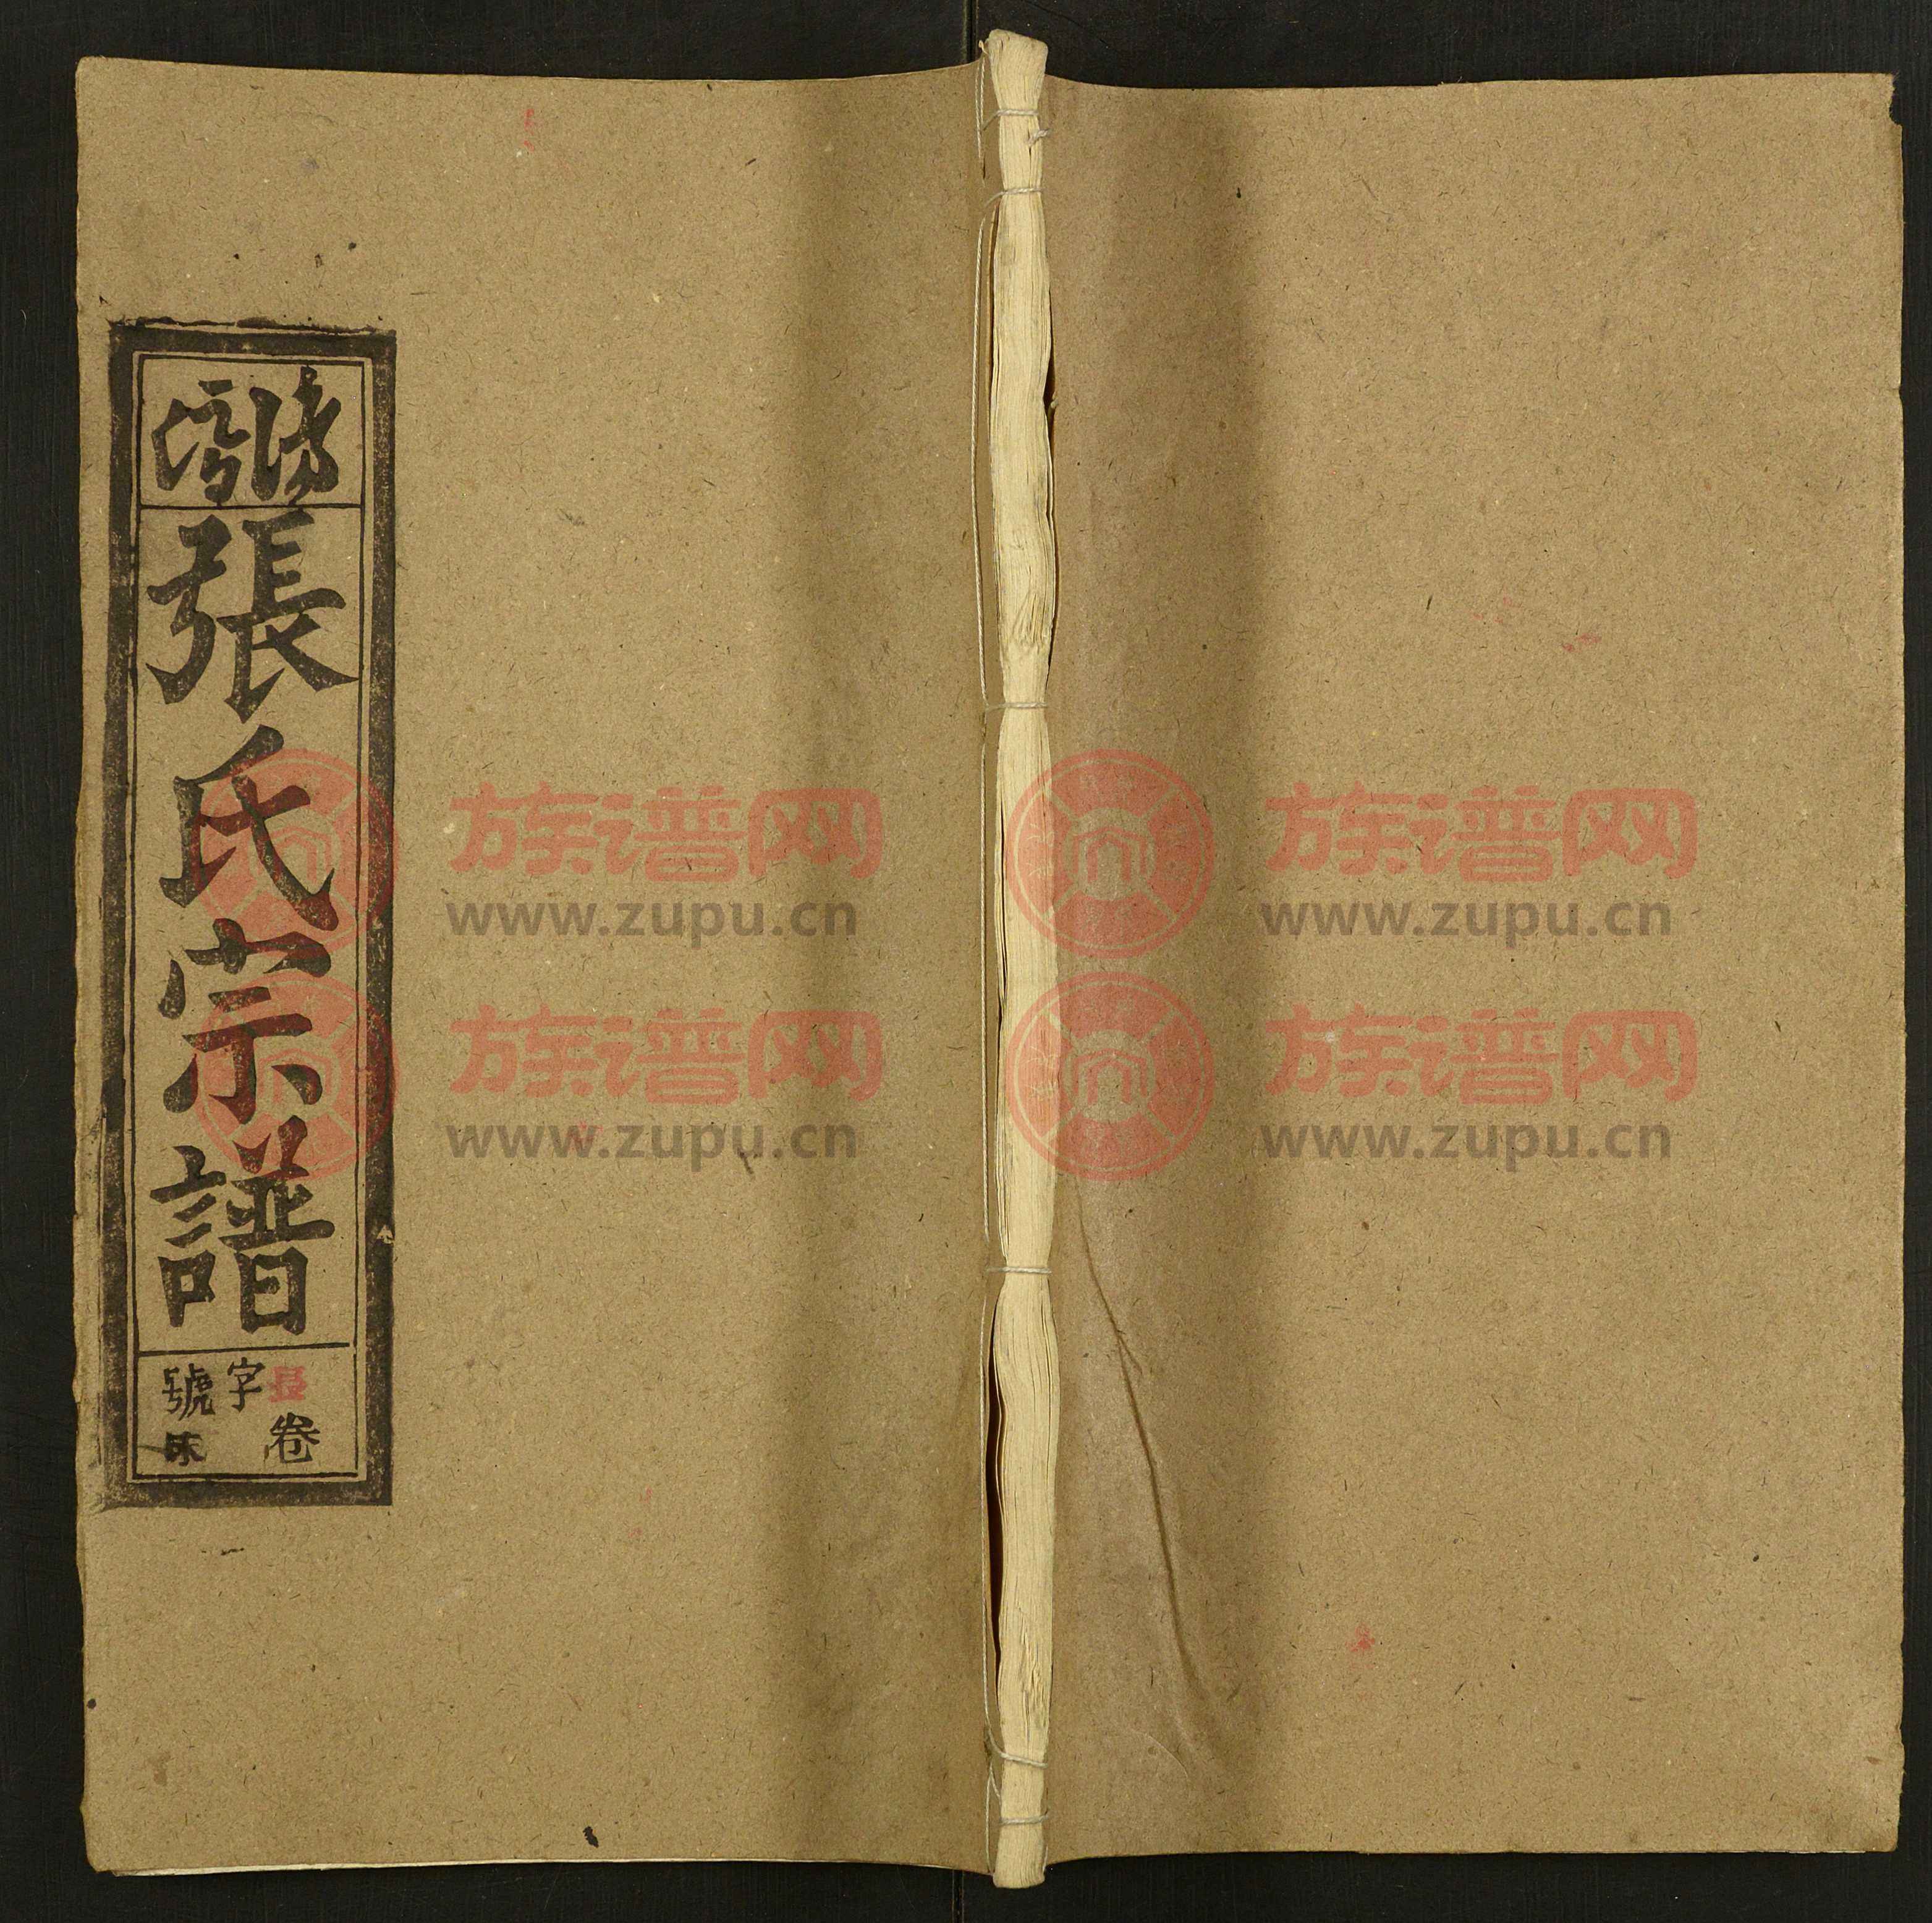 張氏宗譜
卷
字
號
族谱网
www.zupu.cn
族谱网
www.zupu.cn
族谱网
www.zupu.cn
族谱网
www.zupu.cn